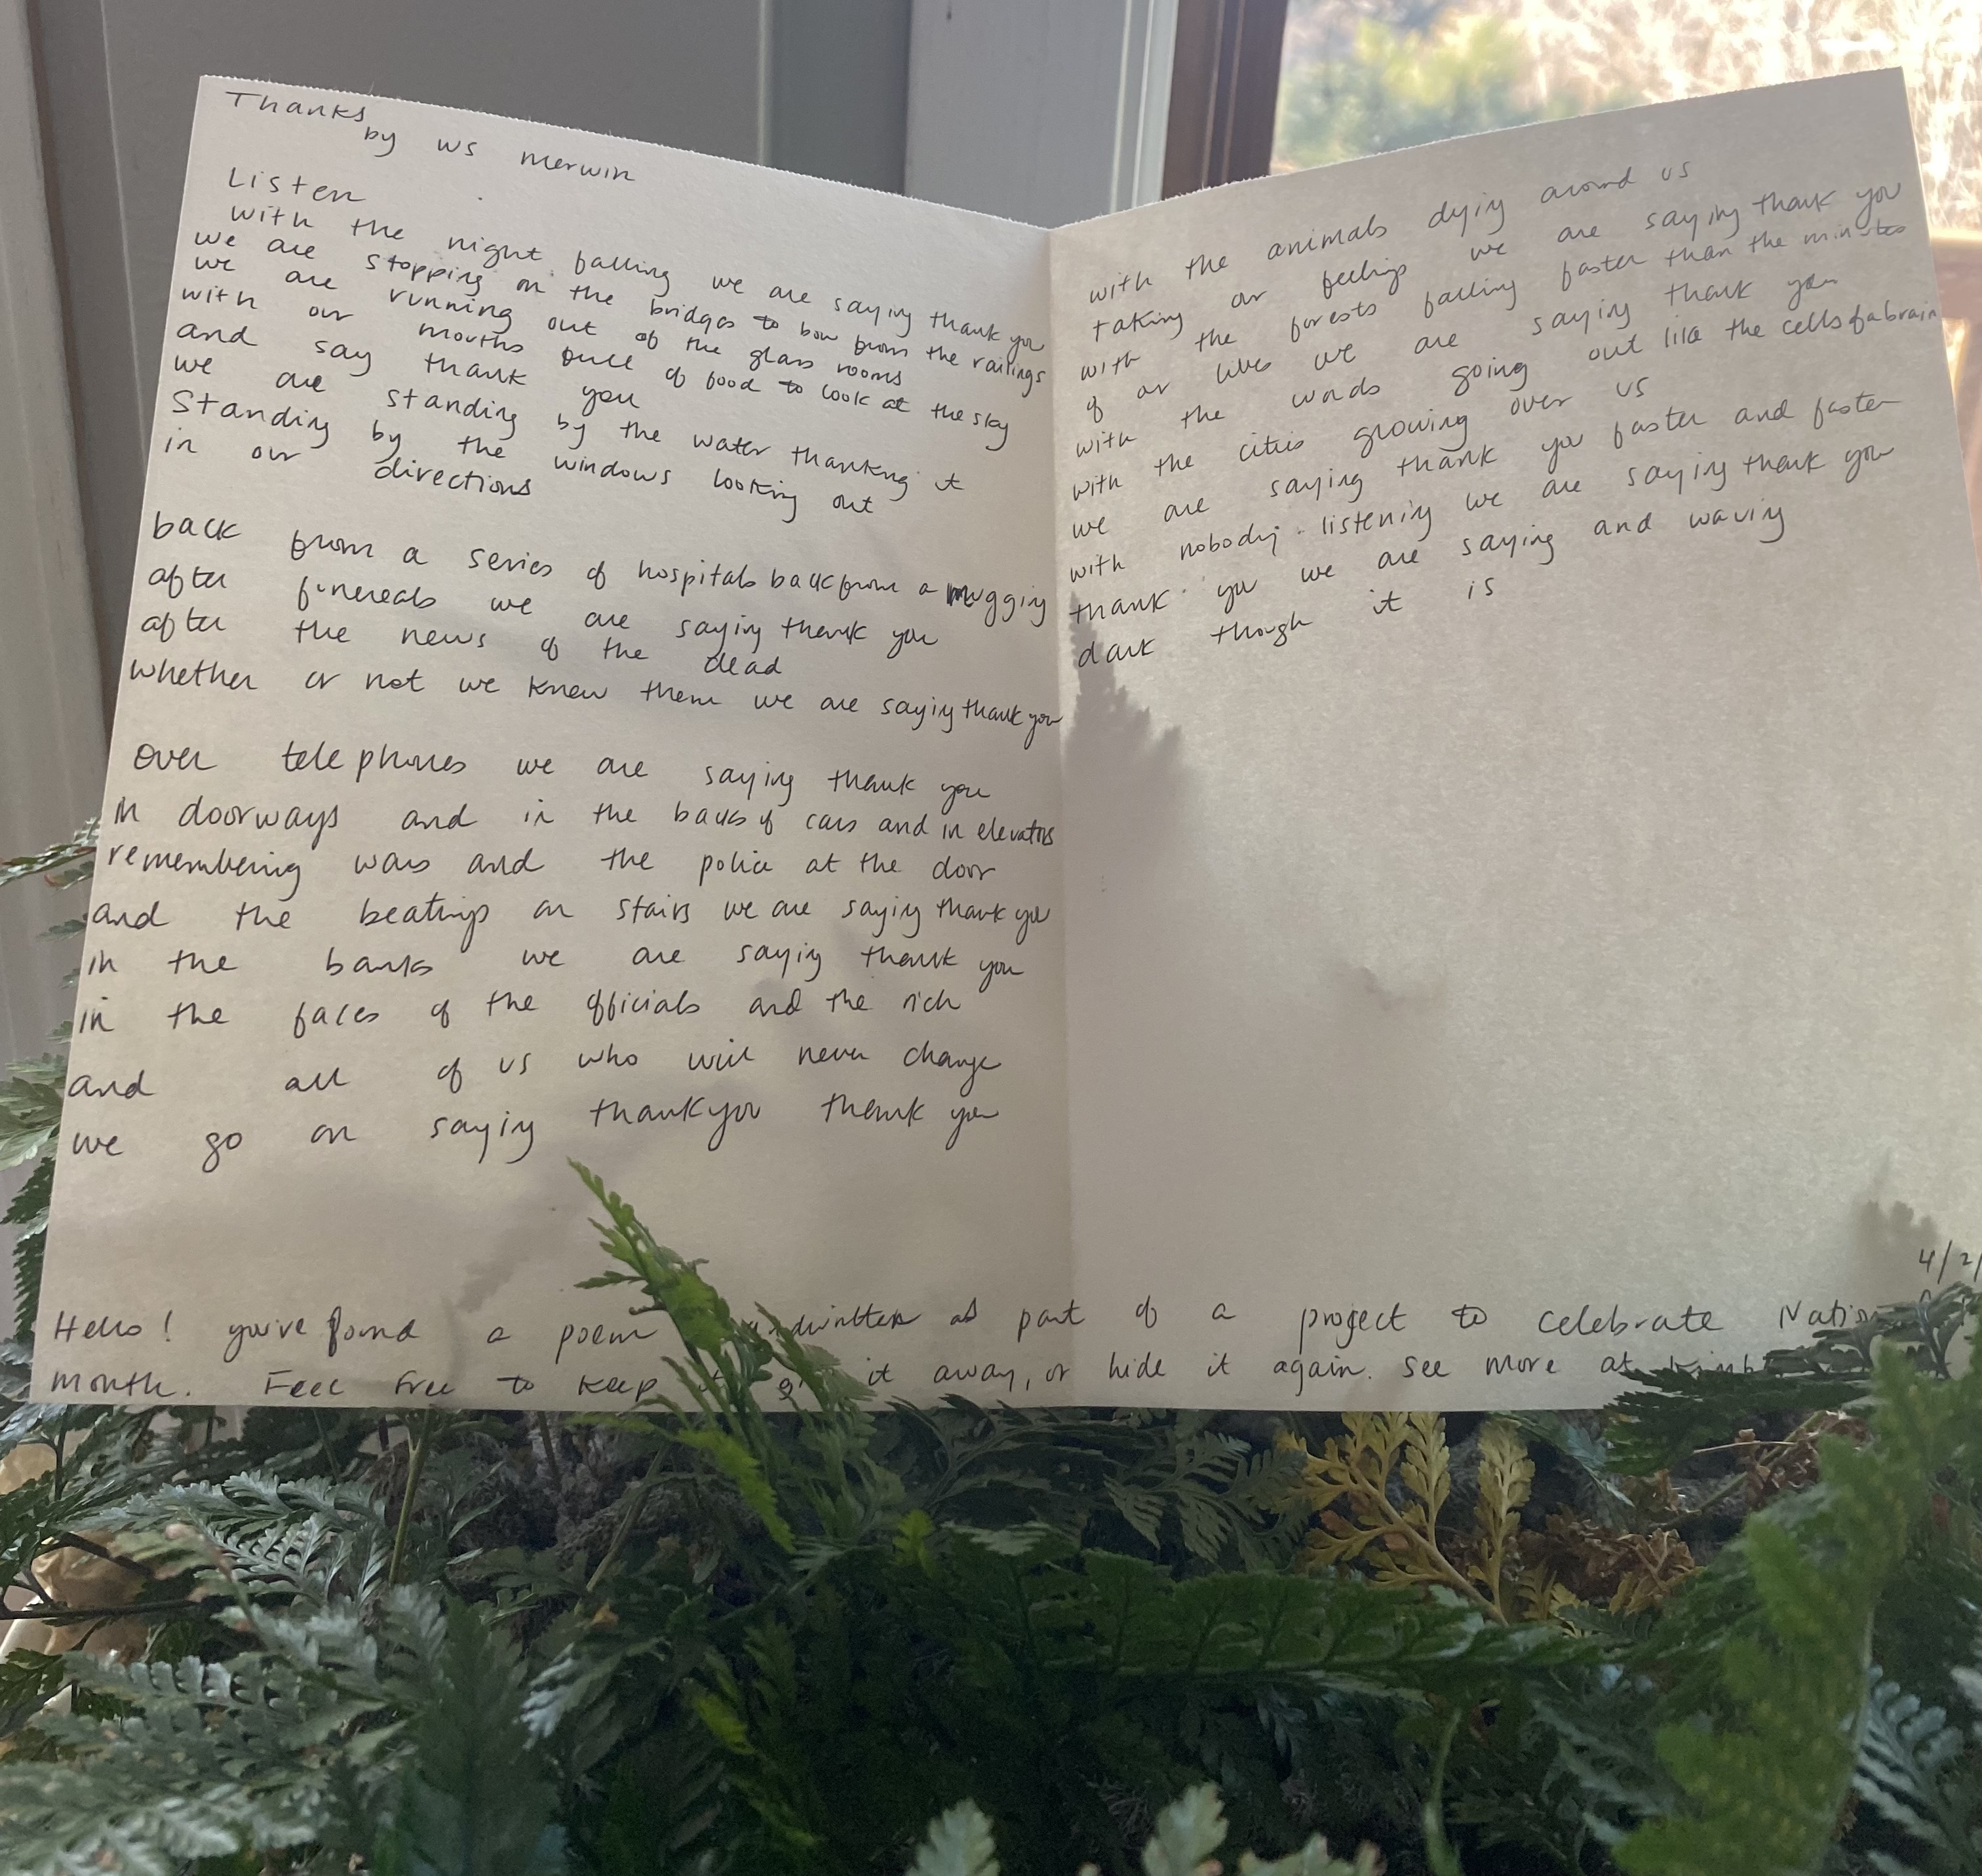 Thanks
by ws merwin
Listen
with the night falling we are saying thank you
we are stopping on the bridges to bow from the railings
we are running out of the glass rooms
with our mouths full of food to look at the sky
and say thank you
we are standing by the water thanking it
standing by the windows looking out
in our directions
back from a series of hospitals back from a mugging
after funerals we are saying thank you
after the news of the dead
whether or not we knew them we are saying thank you
over telephones we are saying thank you
in doorways and in the backs of cars and in elevators
remembering wars and the police at the door
and the beatings on stairs we are saying thank you
in the banks we are saying thank you
in the faces of the officials and the rich
and all of us who will never change
we go on saying thank you thank you
with the animals dying around us
taking our feelings we are saying thank you
with the forests falling faster than the minutes
of our lives we are saying thank you
with the words going out like the cells of a brain
with the cities growing over us
we are saying thank you faster and faster
with nobody listening we are saying thank you
thank you we are saying and waving
dark though it is
4/2/
Hello! you've found a poem handwritten as part of a project to celebrate
month. Feel free to keep it it away, or hide it again. see more at